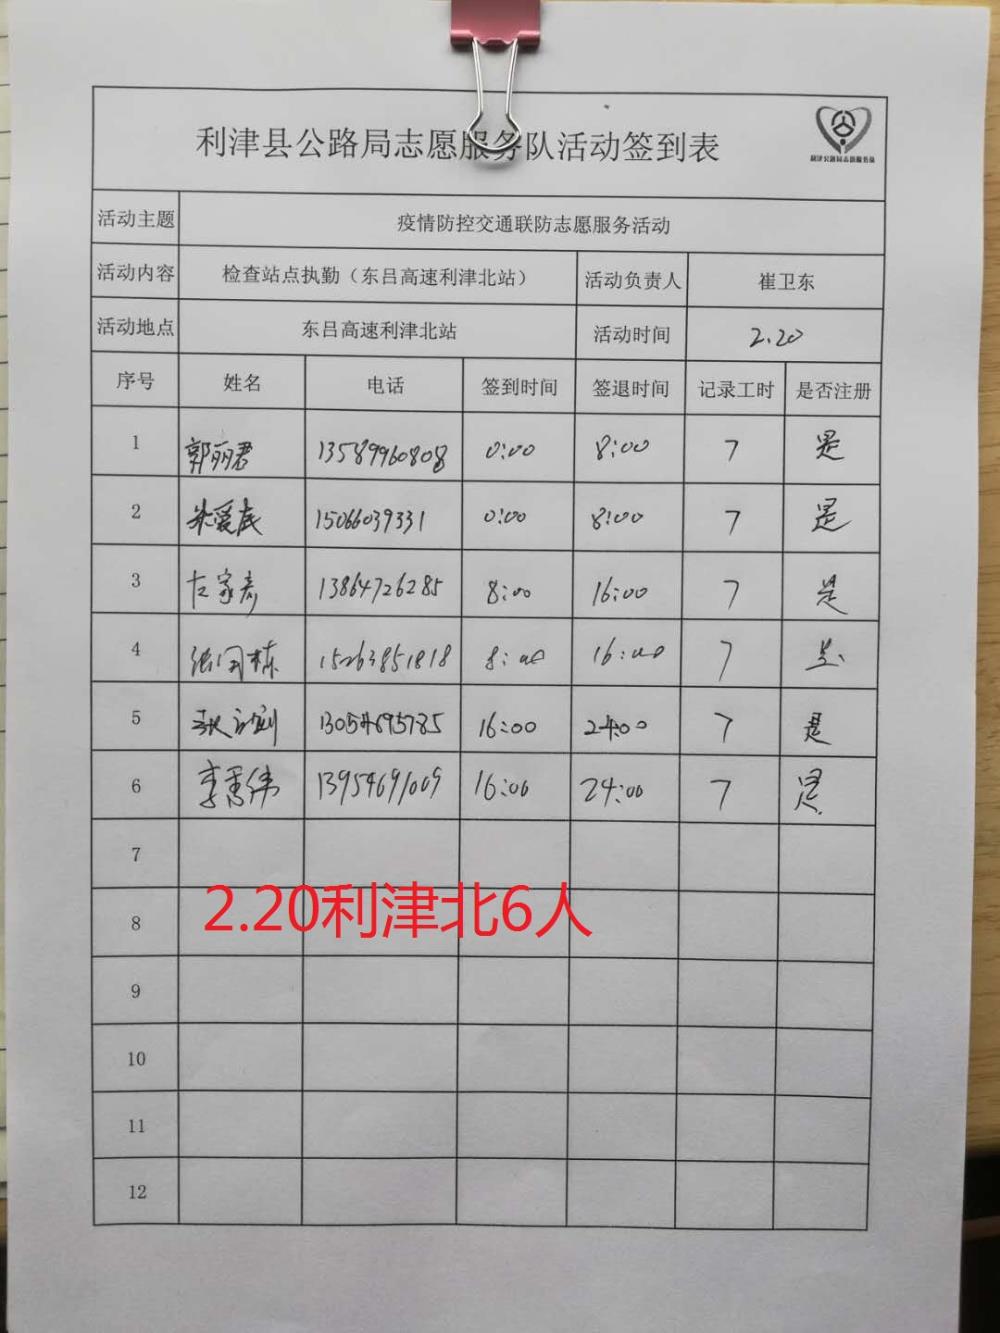 利津县公路局志愿服务队活动签到表
利津公路局志愿服务队
活动主题 疫情防控交通联防志愿服务活动
活动内容 检查站点执勤（东吕高速利津北站） 活动负责人 崔卫东
活动地点 东吕高速利津北站 活动时间 2.20
序号 姓名 电话 签到时间 签退时间 记录工时 是否注册
1 郭丽君 13589960808 0:00 8:00 7 是
2 15066039331 0:00 8:00 7 是
3 左家彦 13864726285 8:00 16:00 7 是
4 张国栋 15263851818 8:00 16:00 7 是
5 13054695785 16:00 24:00 7 是
6 李秀伟 13954691009 16:00 24:00 7 是
7
2.20利津北6人
8
9
10
11
12